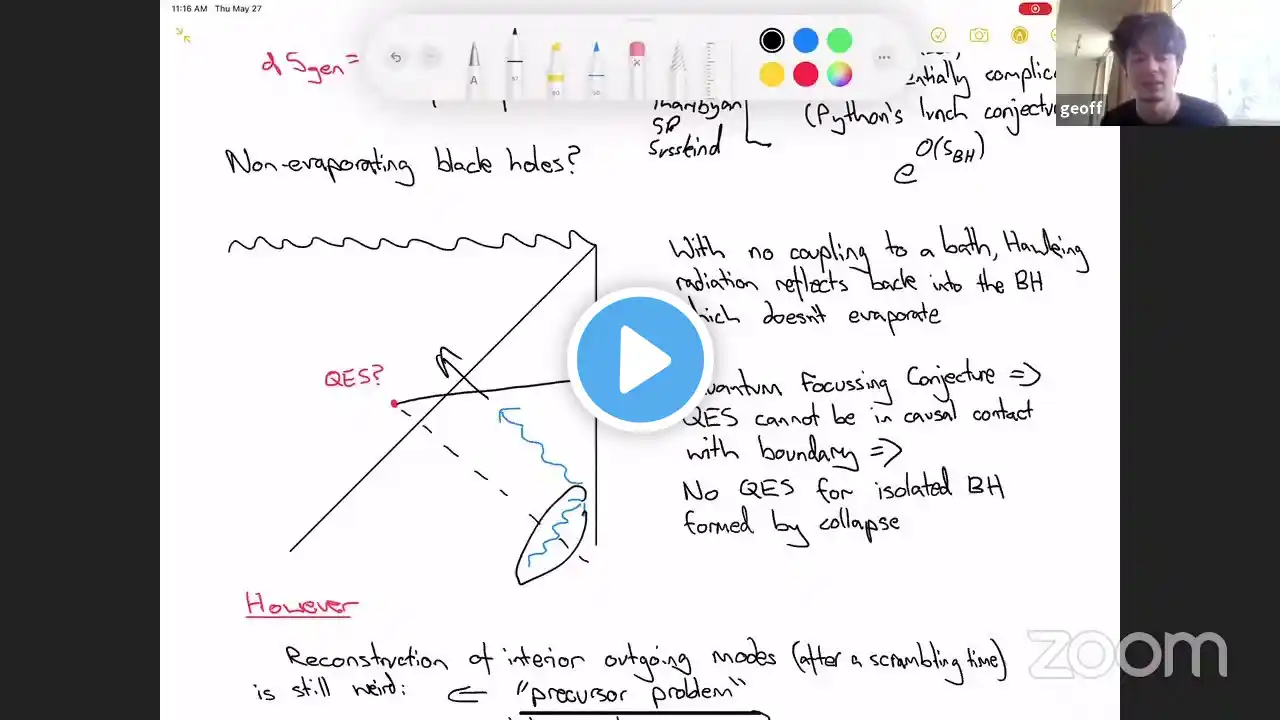 11:16 AM Thu May 27
d Sgen =
entially complic
(Python's lunch conjectu
geoff
Tharibyan
SP
Susskind
e^O(S_BH)
Non-evaporating black holes?
With no coupling to a bath, Hawking
radiation reflects back into the BH
which doesn't evaporate
QES?
Quantum Focussing Conjecture =>
QES cannot be in causal contact
with boundary =>
No QES for isolated BH
formed by collapse
However
Reconstruction of interior outgoing modes (after a scrambling time)
is still weird: <= "precursor problem"
zoom